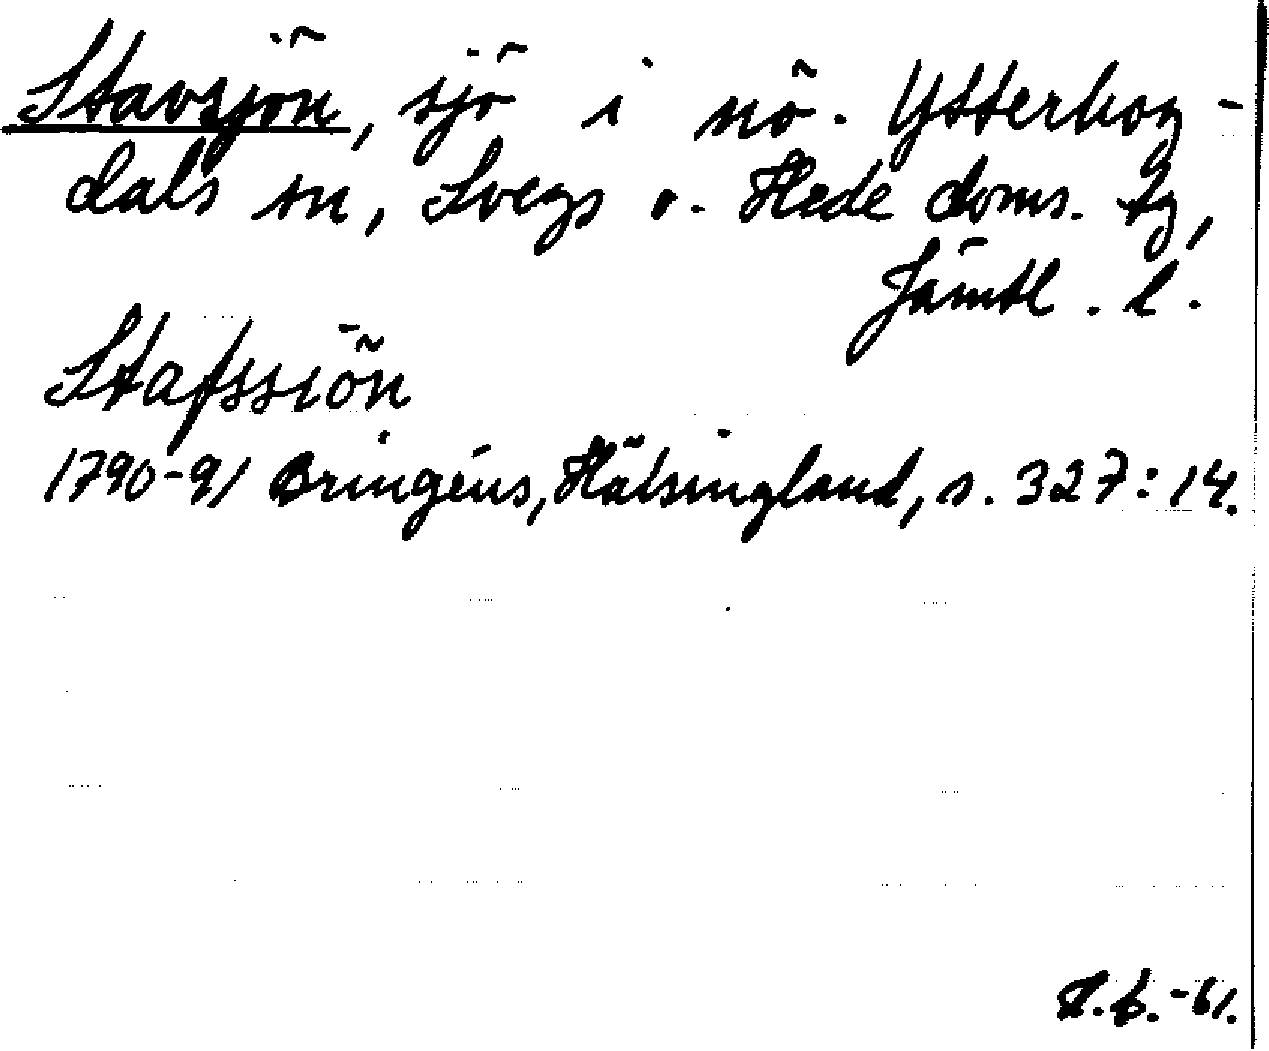 Stavsjön, sjö i nö. Ytterhog-
dals sn, Svegs o. Hede doms. tg,
Jämtl. l.
Stafssiön
1790-91 Bringéus, Hälsingland, s. 327:14.
H.b.-61.